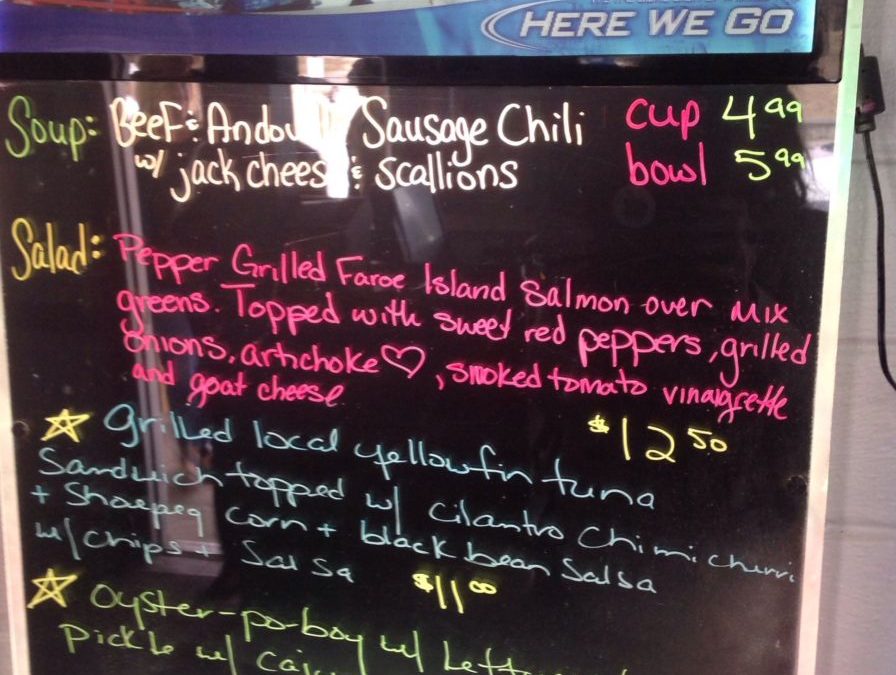 HERE WE GO
Soup: Beef & Andouille Sausage Chili cup 4.99
w/ jack cheese & scallions bowl 5.99
Salad: Pepper Grilled Faroe Island Salmon over mix
greens. Topped with sweet red peppers, grilled
onions, artichoke ♡, smoked tomato vinaigrette
and goat cheese
$12.50
☆ Grilled local yellowfin tuna
Sandwich topped w/ cilantro chimichurri
+ Shoepeg corn + black bean salsa
w/ chips + Salsa $11.00
☆ Oyster-po-boy w/
Pickle w/